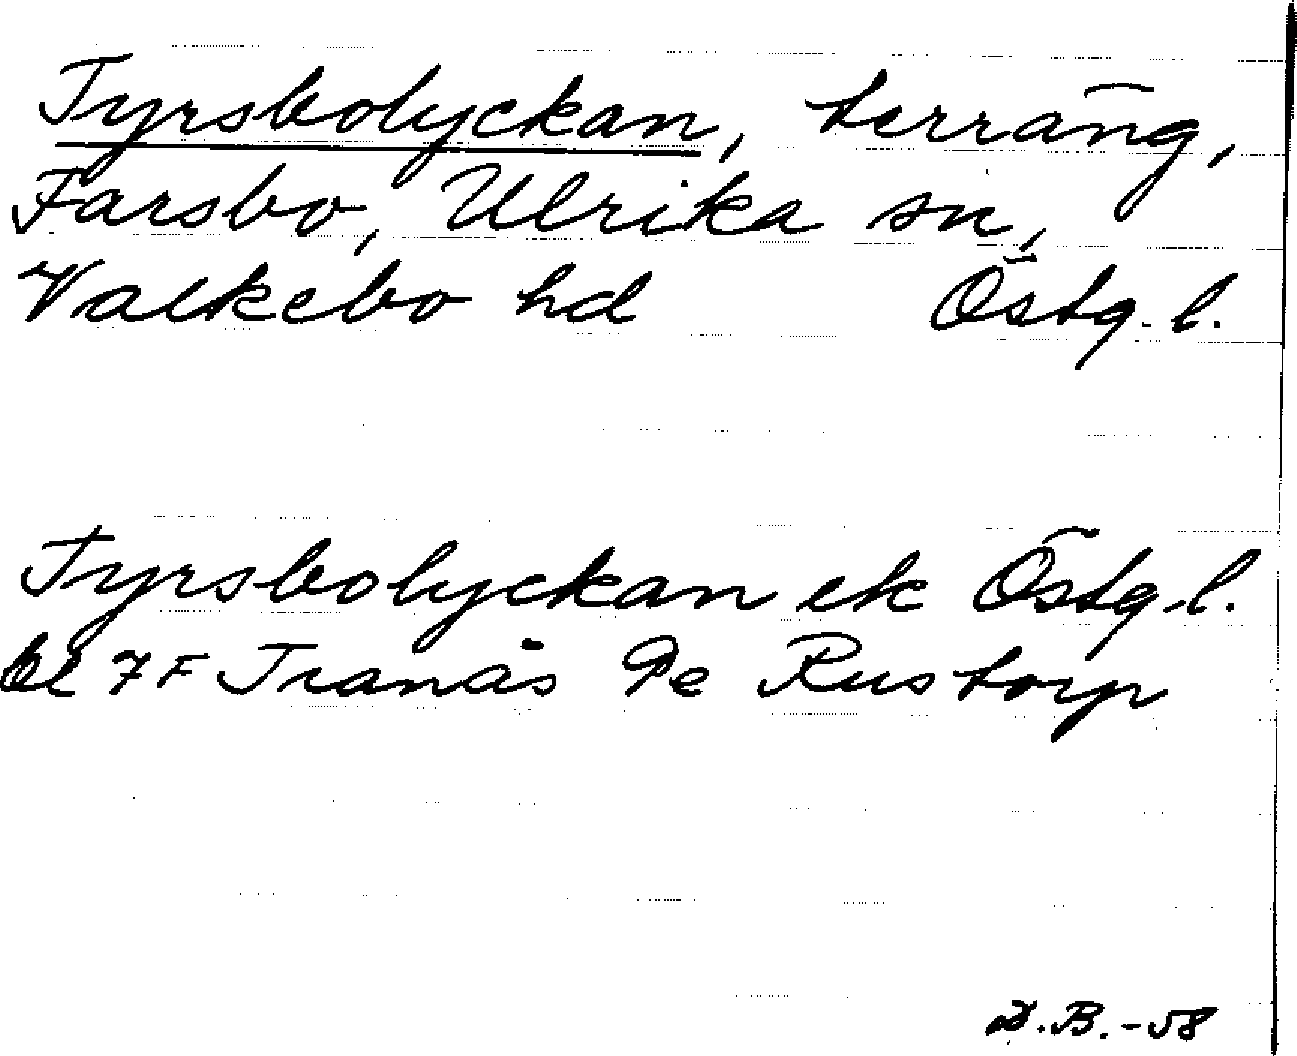 Tyrsbolyckan, terräng,
Farsbo, Ulrika sn,
Valkebo hd Östg. l.
Tyrsbolyckan ek Östg. l.
bl 7F Tranås 9e Rustorp
B. -58